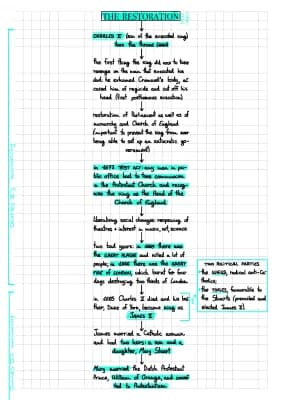 THE RESTORATION
CHARLES II (son of the executed king)
took the throne
The first thing the king did was to take
revenge on the men that executed his
dad: he exhumed Cromwell's body, ac
cused him of regicide and cut off his
head (first posthumous execution)
restoration of Parliament as well as of
monarchy and Church of England
(important to prevent the king from ever
being able to set up an autocratic go-
vernment)
in 1673 TEST ACT: any man in pu-
blic office had to take communion
in the Protestant Church and recog-
nise the king as the Head of the
Church of England
Liberalising social changes: reopening of
theatres + interest in music, art, science
two bad years: in 1665 there was
the GREAT PLAGUE and killed a lot of
people; in 1666 there was the GREAT
FIRE of LONDON, which burnt for four
days destroying two thirds of London
TWO POLITICAL PARTIES
the WHIGS, radical anti-Ca
tholics;
the TORIES, favourable to
the Stuarts (promoted and
elected James II)
in 1685 Charles II died and his bro
ther, Duke of York, became king as
JAMES II
James married a Catholic woman
and had two heirs: a son and a
daughter, Mary Stuart
Mary married the Dutch Protestant
Prince, William of Orange, and conver
ted to Protestantism